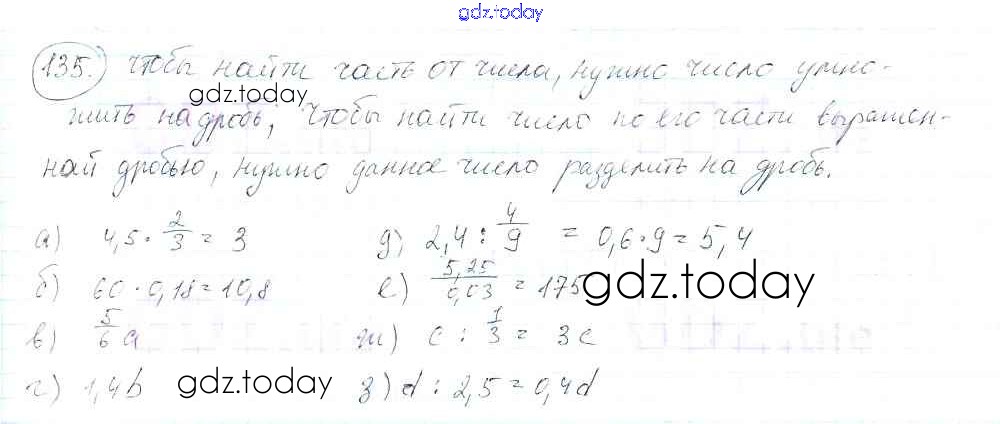 gdz.today
135. Чтобы найти часть от числа, нужно число умно-
gdz.today
жить на дробь; Чтобы найти число по его части выражен-
ной дробью, нужно данное число разделить на дробь.
а) 4,5 · 2/3 = 3
д) 2,4 : 4/9 = 0,6 · 9 = 5,4
б) 60 · 0,18 = 10,8
е) 5,25/0,03 = 175
gdz.today
в) 5/6 a
ж) c : 1/3 = 3c
г) 1,4b
gdz.today
з) d : 2,5 = 0,4d